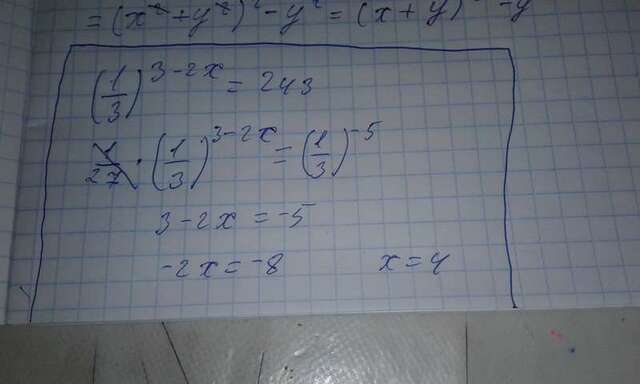 = (x² + y²)² - y² = (x + y) - y
(1/3)^(3-2x) = 243
1/27 · (1/3)^(3-2x) = (1/3)^(-5)
3 - 2x = -5
-2x = -8 x = 4